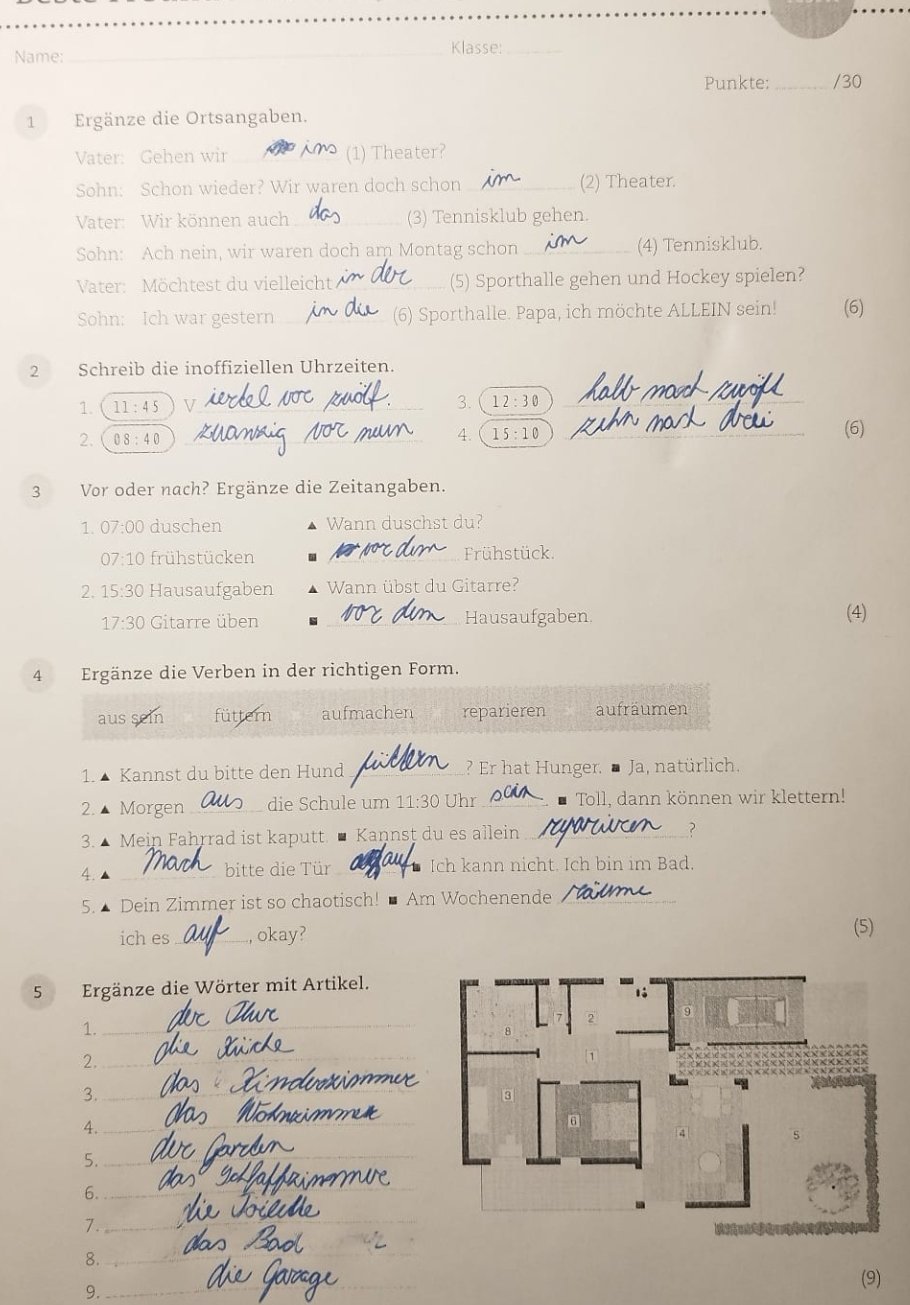 Name: Klasse:
Punkte: /30
1 Ergänze die Ortsangaben.
Vater: Gehen wir ins (1) Theater?
Sohn: Schon wieder? Wir waren doch schon im (2) Theater.
Vater: Wir können auch das (3) Tennisklub gehen.
Sohn: Ach nein, wir waren doch am Montag schon im (4) Tennisklub.
Vater: Möchtest du vielleicht in der (5) Sporthalle gehen und Hockey spielen?
Sohn: Ich war gestern in die (6) Sporthalle. Papa, ich möchte ALLEIN sein! (6)
2 Schreib die inoffiziellen Uhrzeiten.
1. 11:45 Viertel vor zwölf. 3. 12:30 halb nach zwölf
2. 08:40 zwanzig vor neun 4. 15:10 zehn nach drei (6)
3 Vor oder nach? Ergänze die Zeitangaben.
1. 07:00 duschen ▲ Wann duschst du?
07:10 frühstücken ■ vor dem Frühstück.
2. 15:30 Hausaufgaben ▲ Wann übst du Gitarre?
17:30 Gitarre üben ■ vor dem Hausaufgaben. (4)
4 Ergänze die Verben in der richtigen Form.
aus sein füttern aufmachen reparieren aufräumen
1. ▲ Kannst du bitte den Hund füttern? Er hat Hunger. ■ Ja, natürlich.
2. ▲ Morgen aus die Schule um 11:30 Uhr sein. ■ Toll, dann können wir klettern!
3. ▲ Mein Fahrrad ist kaputt. ■ Kannst du es allein reparieren?
4. ▲ Mach bitte die Tür auf. ■ Ich kann nicht. Ich bin im Bad.
5. ▲ Dein Zimmer ist so chaotisch! ■ Am Wochenende räume
ich es auf, okay? (5)
5 Ergänze die Wörter mit Artikel.
1. der
2. die Küche
3. das Kinderzimmer
4. das Wohnzimmer
5. der Garden
6. das Schlafzimmer
7. die Toilette
8. das Bad
9. die Garage (9)
8 7 2 9
1
3 6 4 5